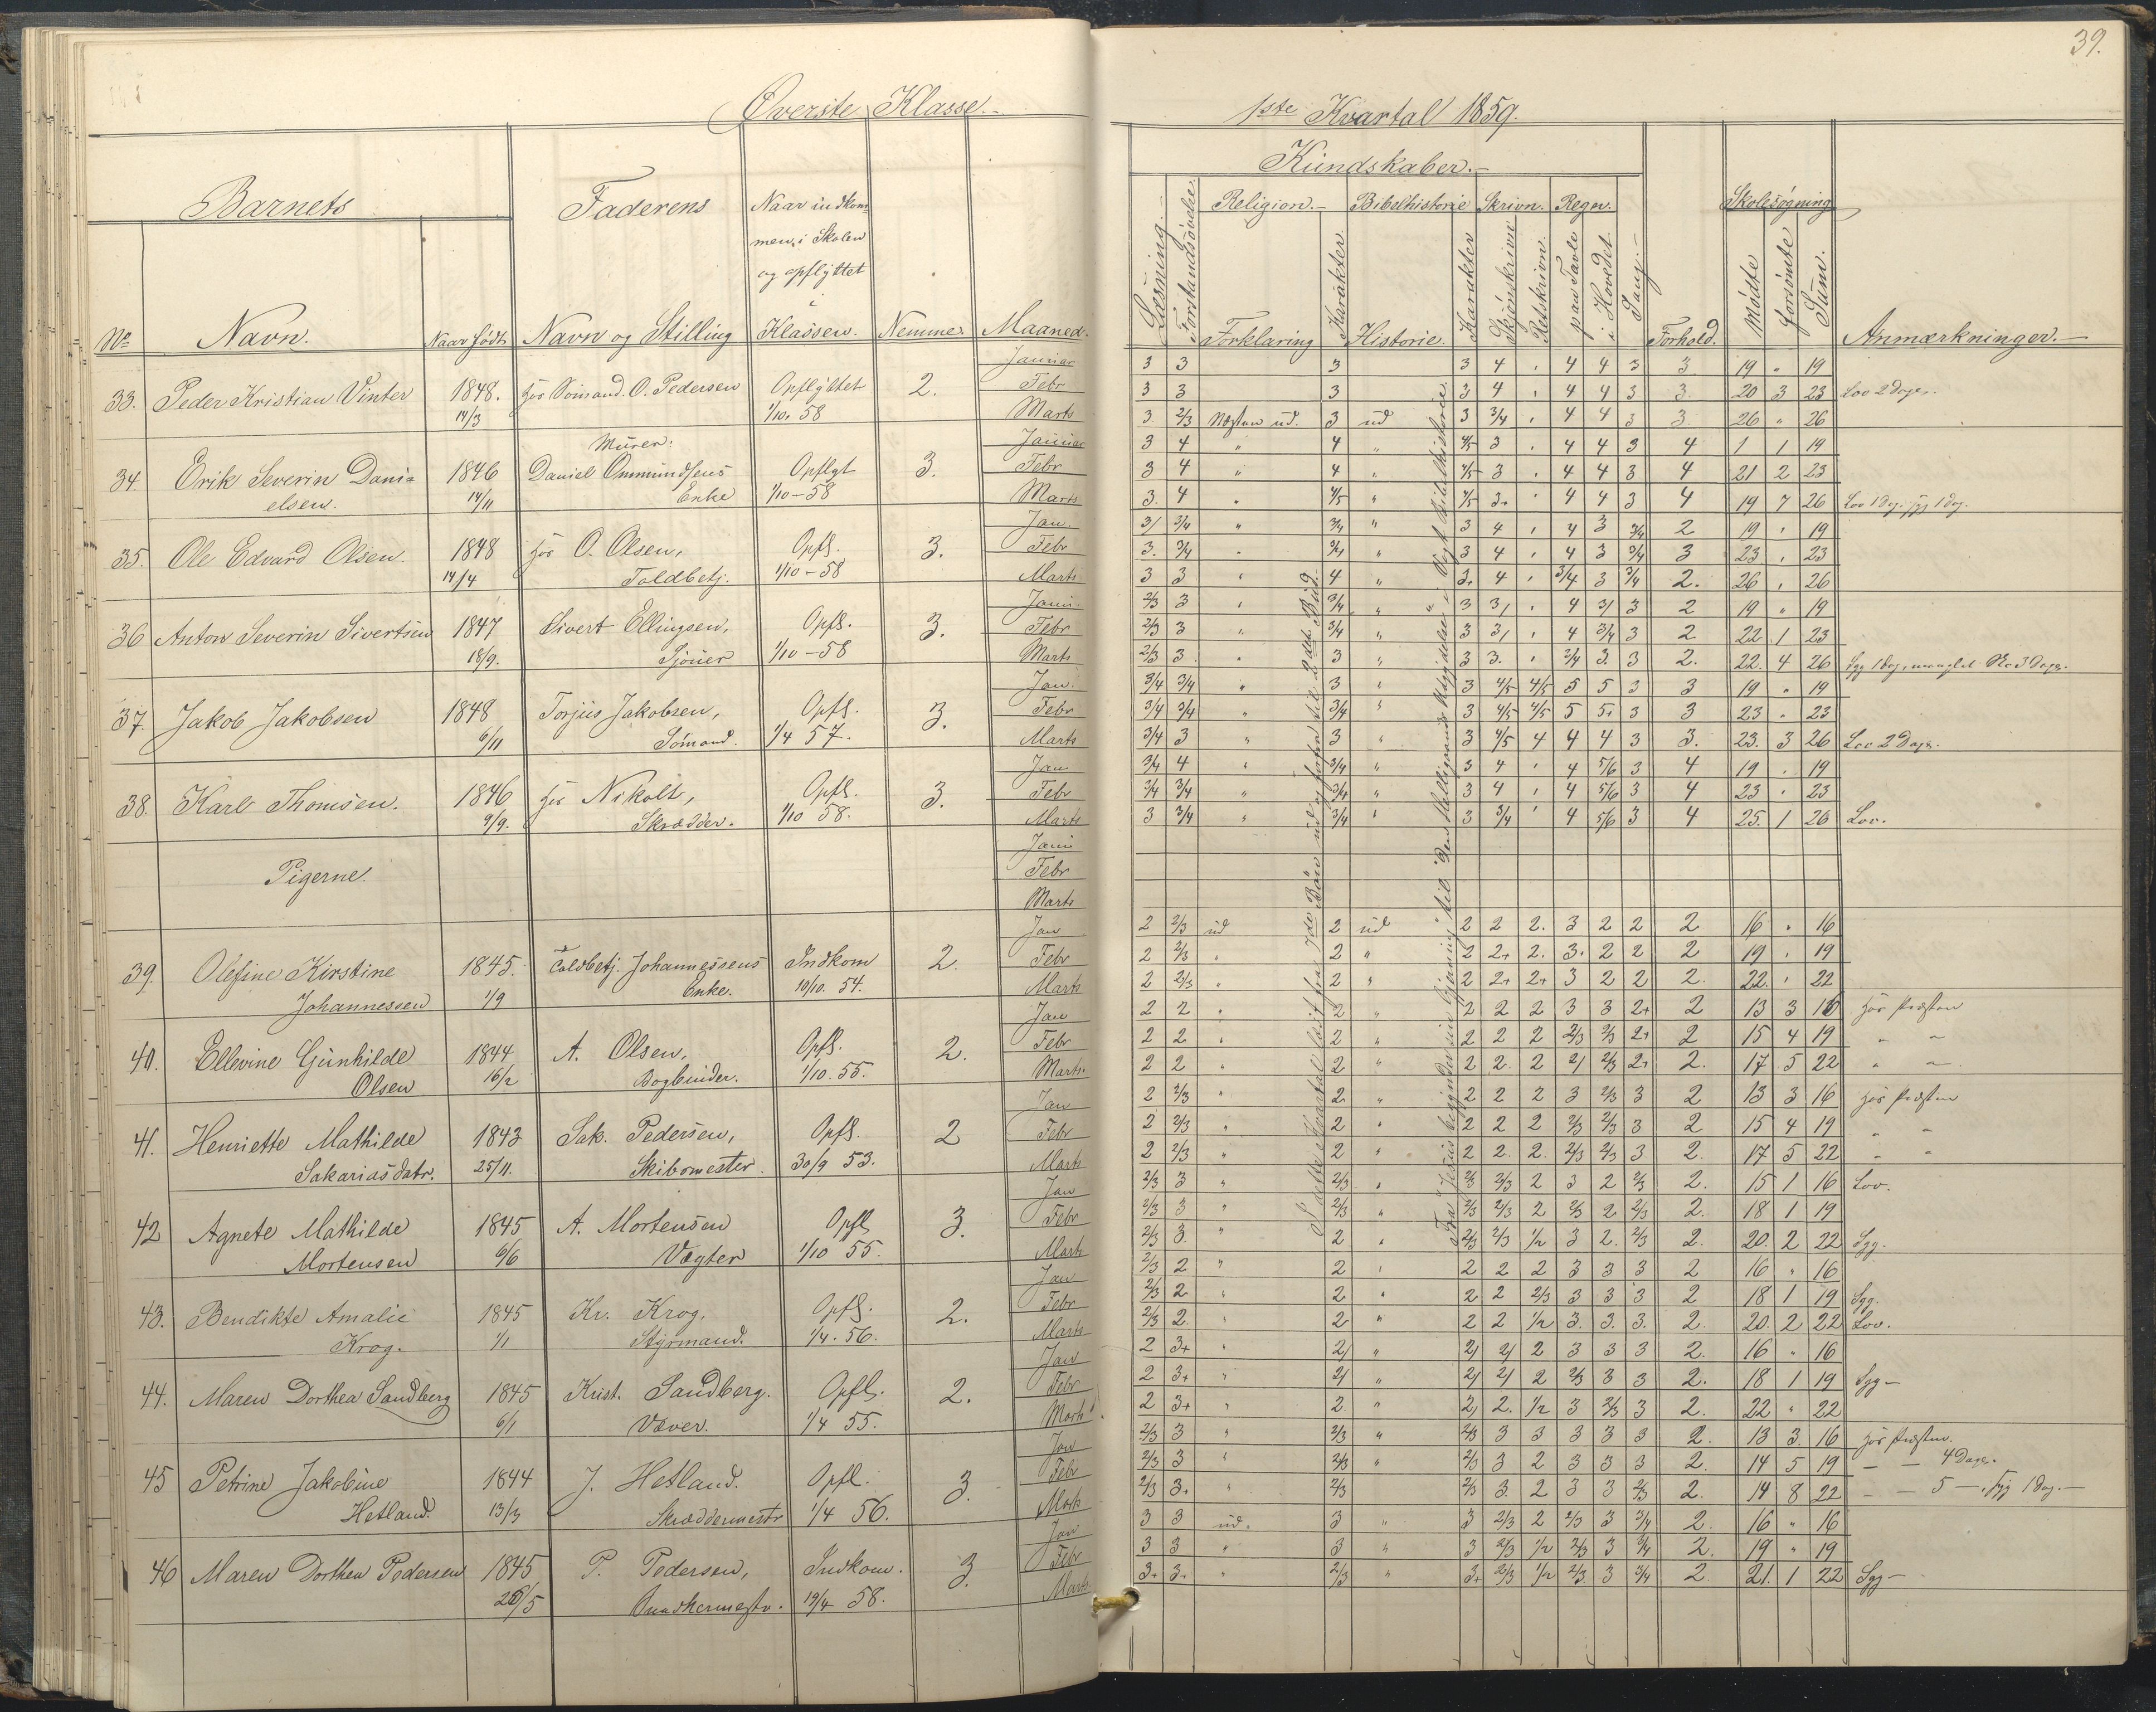 39.
Øverste Klasse.
1ste Kvartal 1859.
Barnets
Faderens
Naar indkom-
men i Skolen
og opflyttet
i
Klassen.
No
Navn.
Naar født
Navn og Stilling
Nemme.
Maaned.
Kundskaber.
Læsning.
Forstandsøvelse
Religion.
Bibelhistorie
Skrivn.
Regn.
Sang.
Forklaring
Karakter.
Historie.
Karakter
Skjönskrivn
Retskrivn.
paa Tavle
i Hovedet
Forhold.
Skolesøgning
Mödte
forsömte
Sum.
Anmærkninger.
33. Peder Kristian Vinter 1848. hos Sömand. O. Pedersen Opflyttet 2.
14/3 1/10. 58
Januar 3 3 3 3 4 4 4 3 3 19 " 19
Febr 3 3 3 3 4 4 4 3 3 20 3 23 Lov 2 Dage.
Marts 3. 2/3 Næsten ud. 3 ud 3 3/4 4 4 3 3 26 " 26
Murer.
34. Erik Severin Dani- 1846 Daniel Ommundsens Opflyt 3.
elsen. 14/11 Enke 1/10-58
Januar 3 4 " 4 " 4/5 3 4 4 3 4 1 1 19
Febr 3 4 " 4 " 4/5 3 4 4 3 4 21 2 23
Marts 3. 4 " 4/5 " 4/5 3+ 4 4 3 4 19 7 26 Lov 1 Dag. syg 1 Dag.
35. Ole Edvard Olsen. 1848 hos O. Olsen, Opfl. 3.
14/4 Toldbetj. 1/10-58
Jan. 3/ 3/4 " 3/4 " 3 4 4 3 3/4 2 19 " 19
Febr 3. 3/4 " 3/4 " 3 4 4 3 3/4 3 23 " 23
Marts 3 3 " 4 " 3+ 4 3/4 3 3/4 2. 26 " 26
36 Anton Severin Sivertsen 1847 Sivert Ellingsen, Opfl. 3.
18/9. Sjouer 1/10-58
Janu. 2/3 3 " 3/4 " 3 3/ 4 3/ 3 2 19 " 19
Febr 2/3 3 " 3/4 " 3 3/ 4 3/4 3 2 22 1 23
Marts 2/3 3 " 3 " 3 3. 3/4 3. 3 2. 22. 4 26 Syg 1 Dag, manglet Sko 3 Dage.
37. Jakob Jakobsen 1848 Torjus Jakobsen, Opfl. 3.
6/11 Sömand. 1/4 57.
Jan. 3/4 3/4 " 3 " 3 4/5 4/5 5 5 3 3 19 " 19
Febr 3/4 3/4 " 3/4 " 3 4/5 4/5 5 5+ 3 3 23 " 23
Marts 3/4 3 " 3 " 3 4/5 4 4 4 3 3. 23. 3 26 Lov 2 Dage.
38. Karl Thomsen. 1846 hos Nikolt, Opfl. 3.
9/9. Skrædder. 1/10 58.
Jan 3/4 4 " 3/4 " 3 4 4 5/6 3 4 19 " 19
Febr 3/4 3/4 " 3/4 " 3 4 4 5/6 3 4 23 " 23
Marts 3 3/4 " 3/4 " 3 3/4 4 5/6 3 4 25. 1 26 Lov.
Pigerne.
Janu
Febr
Marts
39. Olefine Kirstine 1845. Toldbetj. Johannessens Indkom 2.
Johannessen 1/9 Enke. 10/10. 54.
Jan 2 2/3 ud 2 ud 2 2 2. 3 2 2 2 16 " 16
Febr 2 2/3 " 2 " 2 2+ 2. 3+ 2 2 2 19 " 19
Marts 2 2/3 " 2 " 2 2+ 2+ 3 2 2 2. 22. " 22
40. Ellevine Gunhilde 1844 A. Olsen, Opfl. 2.
Olsen 16/2 Bogbinder. 1/10. 55.
Jan 2 2 " 2 " 2 2 2 3 3 2+ 2 13 3 16 hos Præsten
Febr 2 2 " 2 " 2 2 2 2/3 2/3 2+ 2 15 4 19 " "
Marts 2 2 " 2 " 2 2. 2 2/ 2/3 2+ 2. 17 5 22 " "
41. Henriette Mathilde 1843 Sak. Pedersen, Opfl. 2
Sakariasdatr. 25/11. Skibsmester. 30/9 53.
Jan 2 2/3 " 2. " 2 2 2 3 2/3 3 2 13 3 16 hos Præsten
Febr 2 2/3 " 2 " 2 2 2 2/3 2/3 3 2 15 4 19 " "
Marts 2 2/3 " 2 " 2 2. 2. 2/3 2/3 3 2. 17 5 22 " "
42 Agnete Mathilde 1845 A. Mortensen Opfl 3.
Mortensen 6/6 Vægter 1/10 55.
Jan 2/3 3 " 2/3 " 2/3 2/3 2 3 2 2/3 2. 15 1 16 Lov.
Febr 2/3 3 " 2/3 " 2/3 2/3 2 2/3 2 2/3 2. 18 1 19
Marts 2/3 3 " 2 " 2/3 2/3 1/2 3 2. 2/3 2 20. 2 22 Syg.
43. Bendikte Amalie 1845 Kr. Krog. Opfl. 2.
Krog. 1/1 Styrmand. 1/4. 56.
Jan 2/3 2 " 2 " 2 2 2 3 3 3 2 16 " 16
Febr 2/3 2 " 2 " 2 2 2/3 3 3 3 2 18 1 19 Syg.
Marts 2/3 2. " 2 " 2 2 1/2 3. 3. 3. 2. 20. 2 22 Lov.
44. Maren Dorthea Sandberg 1845 Krist. Sandberg. Opfl. 2.
6/1 Væver. 1/4 55.
Jan 2 3+ " 2/ " 2/ 2/ 2 3 3 3 2. 16 " 16
Febr 2 3+ " 2/ " 2/ 2/ 2 2/3 3 3 2. 18 1 19 Syg
Marts 2 3+ " 2 " 2/ 2. 1/2 3 2/3 3 2. 22 " 22
45 Petrine Jakobine 1844 J. Hetland. Opfl. 3.
Hetland. 13/3 Skræddermestr 1/4 56.
Jan 2/3 3 " 2/3 " 2/3 3 3 3 3 3 2. 13 3. 16 hos Præsten.
Febr 2/3 3 " 2/3 " 2/3 3 2 3 3 3 2. 14 5 19 — — 4 Dage.
Marts 2/3 3+ " 2/3 2/3 3. 2 3 3 2/3 2. 14 8 22 — — 5 —, syg 1 Dag.
46 Maren Dorthea Pedersen 1845 P. Pedersen, Indkom. 3.
26/5 19/4 58.
Jan 3 3 ud. 3 " 3 2/3 2 2/3 3 3/4 2. 16 " 16
Febr 3 3 " 3 " 3 2/3 1/2 2/3 3 3/4 2. 19 " 19
Marts 3+ 3+ " 2/3 " 3+ 2/3 1/2 2/3. 3 3/4 2. 21. 1 22 Syg
I dette Kvartal læst fra 7de Bön ud og forfra til 2det Bud.
Fra "Jesus begynder sin Gjerning" til "Den Helligaands Udgydelse" i Vogts Bibelhistorie.